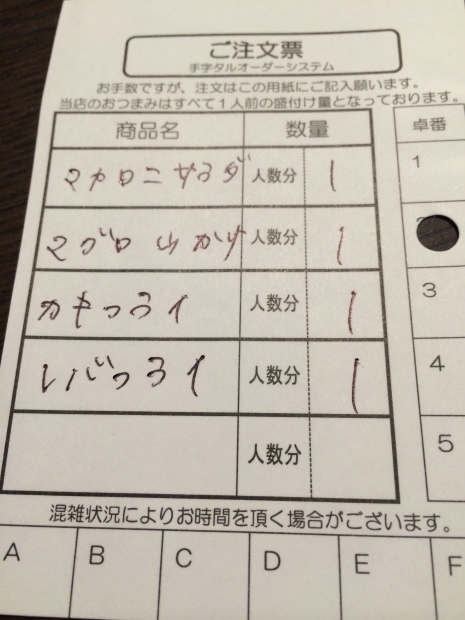 ご注文票
手字タルオーダーシステム
お手数ですが、注文はこの用紙にご記入願います。
当店のおつまみはすべて1人前の盛付け量となっております。
商品名 数量 卓番
マカロニサラダ 人数分 1
1
マグロ山かけ 人数分 1
カキフライ 人数分 1
3
レバフライ 人数分 1
4
人数分
5
混雑状況によりお時間を頂く場合がございます。
A B C D E F